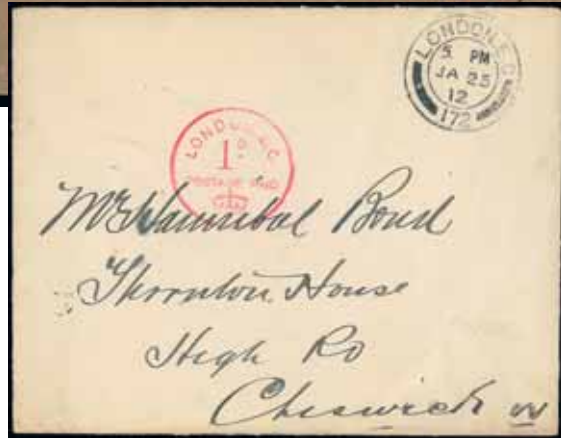 LONDON. E.C
5. PM
JA 25
12
172
LONDON. E.C
1D
POSTAGE PAID
Mr Hannibal Bond
Thornton House
High Ro
Cheswick W